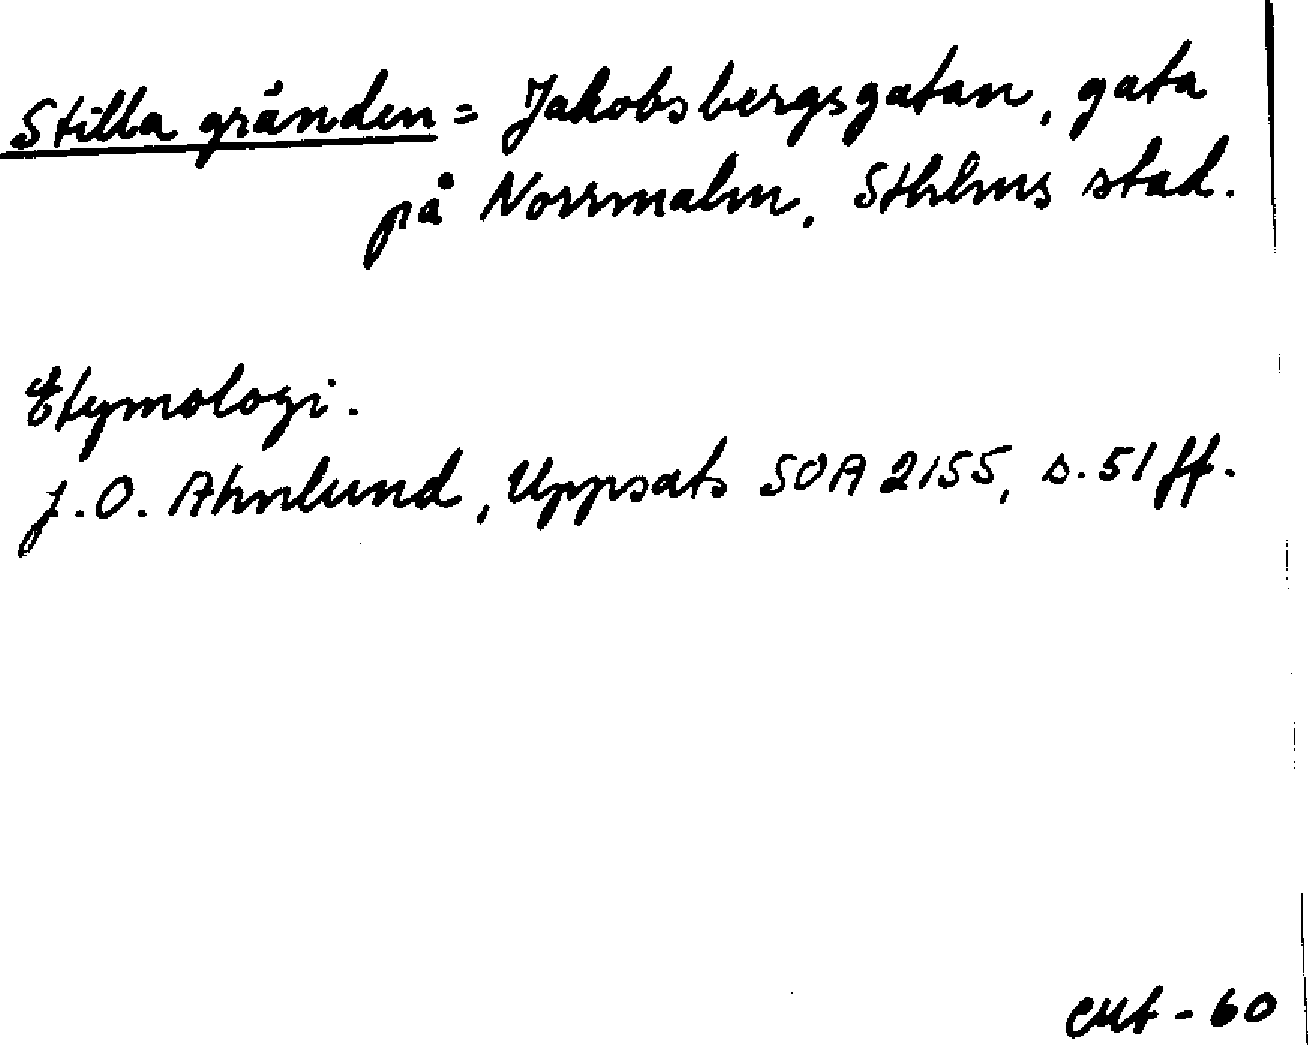 Stilla gränden = Jakobsbergsgatan, gata
på Norrmalm, Sthlms stad.
Etymologi.
J.O. Ahnlund, Uppsats SOA 2155, s. 51 ff.
- 60